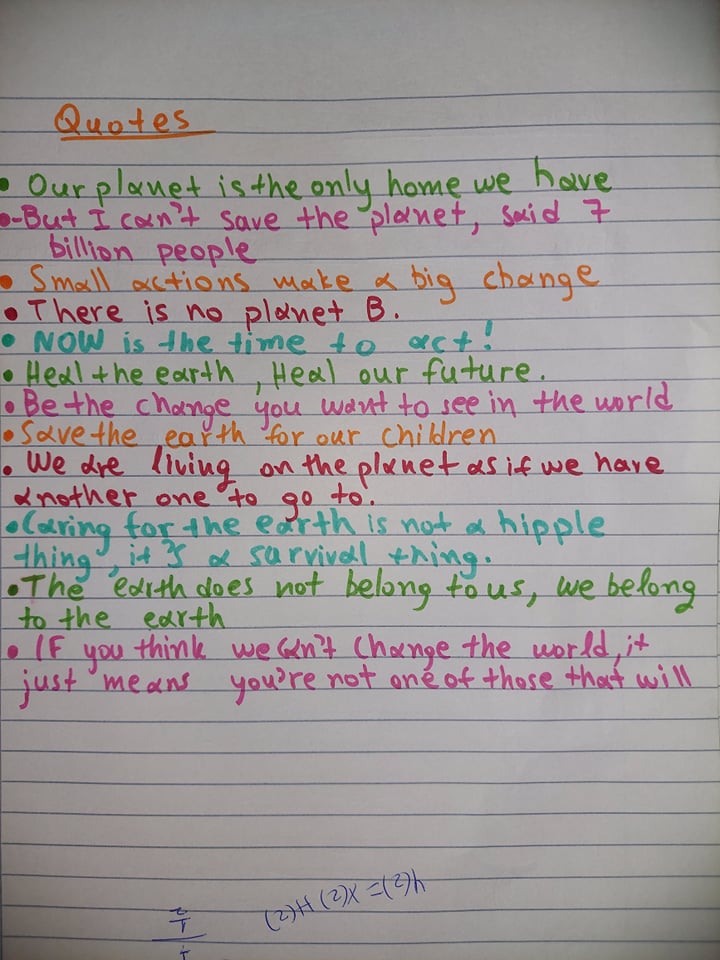 Quotes
• Our planet is the only home we have
•-But I can't save the planet, said 7
billion people
• Small actions make a big change
• There is no planet B.
• NOW is the time to act!
• Heal the earth, Heal our future.
• Be the change you want to see in the world
• Save the earth for our children
• We are living on the planet as if we have
another one to go to.
• Caring for the earth is not a hipple
thing, it is a survival thing.
• The earth does not belong to us, we belong
to the earth
• IF you think we can't change the world, it
just means you're not one of those that will